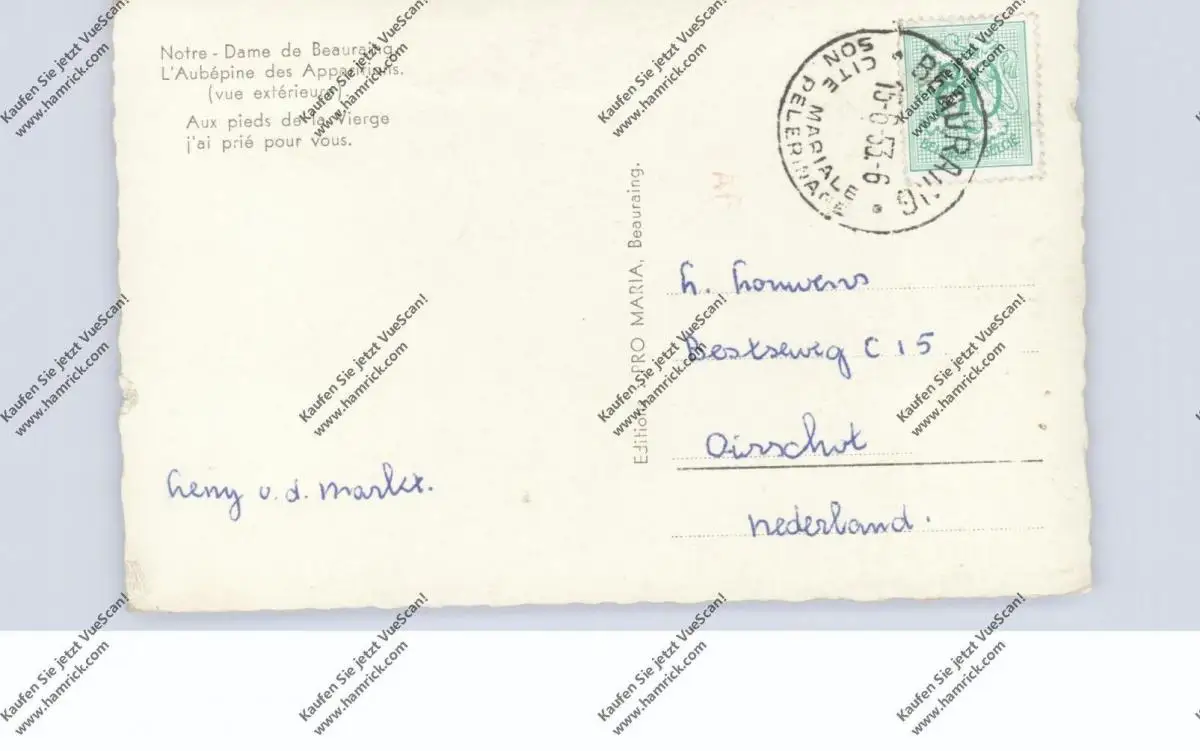 Notre-Dame de Beauraing.
L'Aubépine des Apparitions.
(vue extérieure).
Aux pieds de la Vierge
j'ai prié pour vous.
BEAURAING
15-6-53-6
CITE MARIALE
SON PELERINAGE
Editions PRO MARIA, Beauraing.
h. houwens
Bestseweg C 15
Oirschot
nederland.
heny v.d. markt.
Kaufen Sie jetzt VueScan!
www.hamrick.com